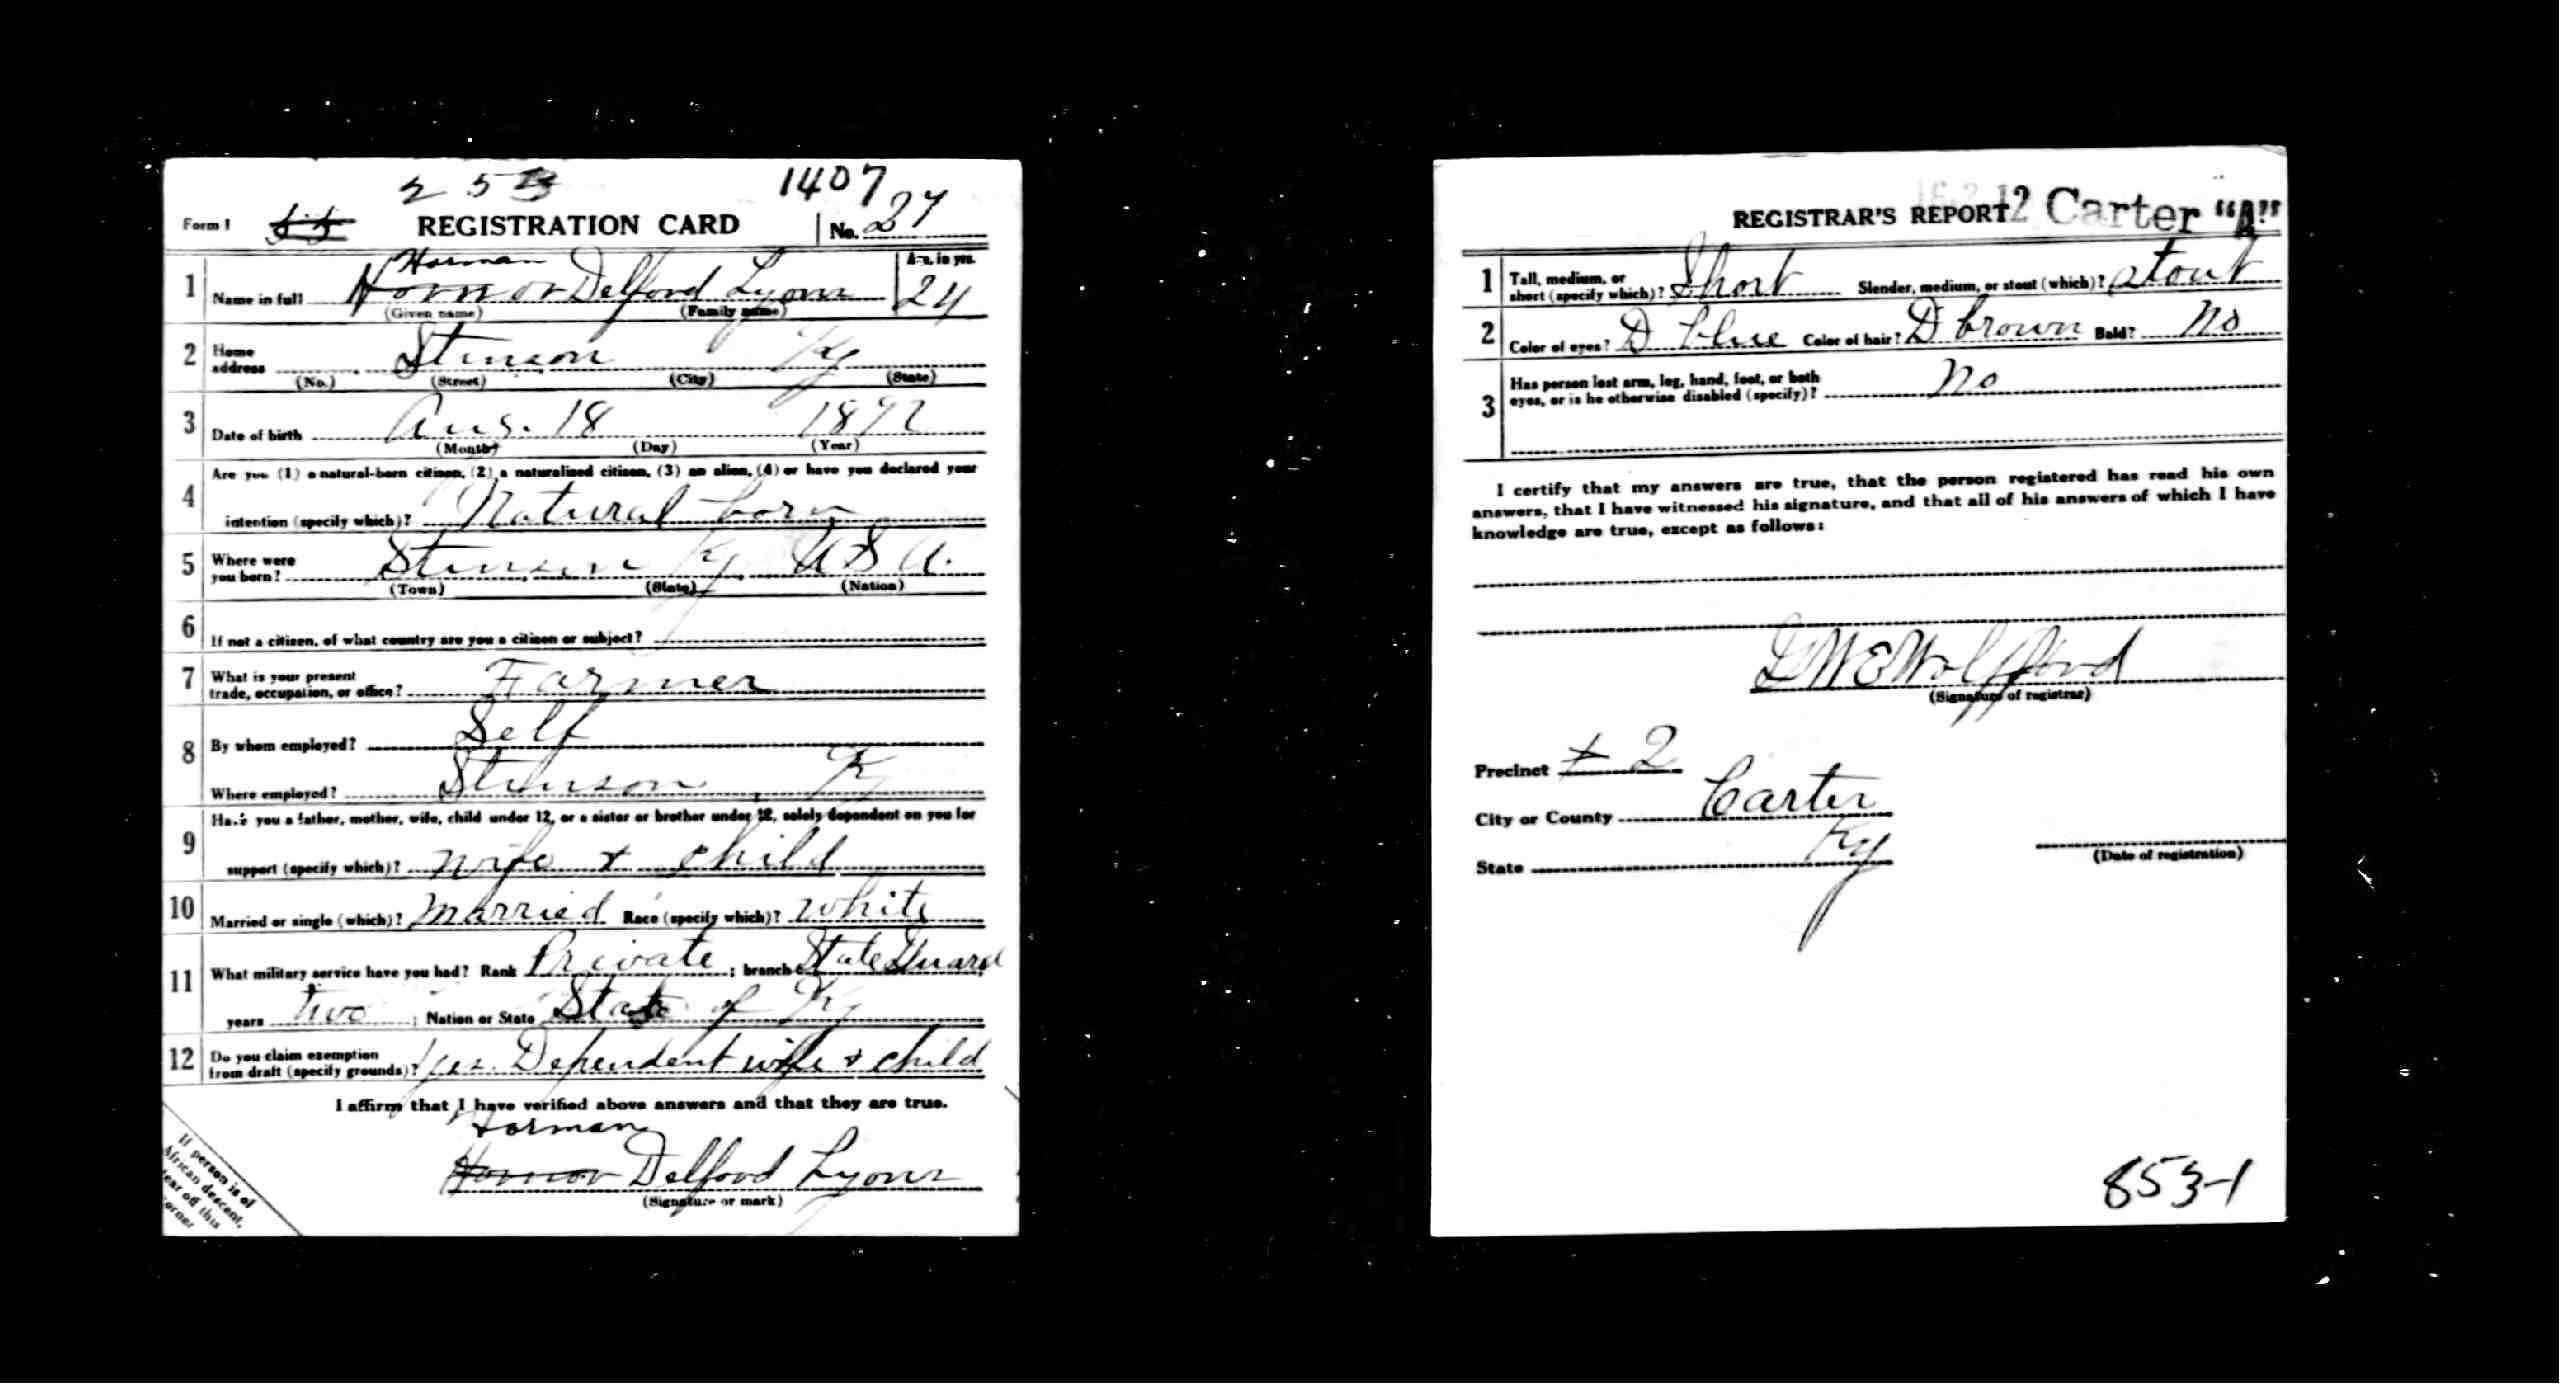 253 1407
Form 1 REGISTRATION CARD No. 27
Horman Age, in yrs.
1 Name in full Delford Lyons 24
(Given name) (Family name)
2 Home address Stinson Ky
(No.) (Street) (City) (State)
3 Date of birth Aug. 18 1892
(Month) (Day) (Year)
4 Are you (1) a natural-born citizen, (2) a naturalized citizen, (3) an alien, (4) or have you declared your
intention (specify which)? Natural born
5 Where were you born? Stinson Ky USA.
(Town) (State) (Nation)
6 If not a citizen, of what country are you a citizen or subject?
7 What is your present trade, occupation, or office? Farmer
8 By whom employed? Self
Where employed? Stinson, Ky
9 Have you a father, mother, wife, child under 12, or a sister or brother under 12, solely dependent on you for
support (specify which)? wife & child
10 Married or single (which)? Married Race (specify which)? white
11 What military service have you had? Rank Private; branch State Guard
years two; Nation or State State of Ky
12 Do you claim exemption from draft (specify grounds)? yes. Dependent wife & child
I affirm that I have verified above answers and that they are true.
Horman
Delford Lyons
(Signature or mark)
If person is of
African descent,
tear off this
corner
REGISTRAR'S REPORT 12 Carter "A"
1 Tall, medium, or short (specify which)? Short Slender, medium, or stout (which)? stout
2 Color of eyes? D blue Color of hair? D brown Bald? No
3 Has person lost arm, leg, hand, foot, or both eyes, or is he otherwise disabled (specify)? no
I certify that my answers are true, that the person registered has read his own
answers, that I have witnessed his signature, and that all of his answers of which I have
knowledge are true, except as follows:
Wolfford
(Signature of registrar)
Precinct # 2
City or County Carter
State Ky
(Date of registration)
853-1